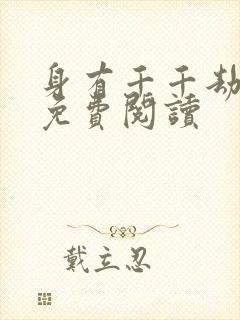 身有千千劫
免費閱讀
戴立忍